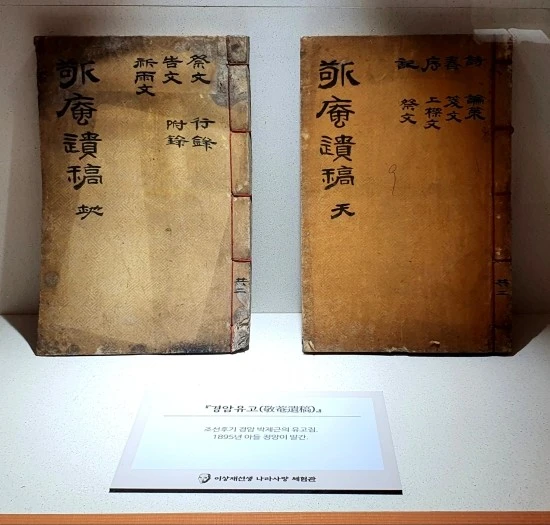 祭文 行錄
告文 附錄
祈雨文
敬庵遺稿
共二
詩 論策
表 箋文
序 上樑文
記 祭文
敬庵遺稿 天
共二
『경암유고(敬菴遺稿)』
조선후기 경암 박제근의 유고집.
1895년 아들 창양이 발간.
이상재선생 나라사랑 체험관